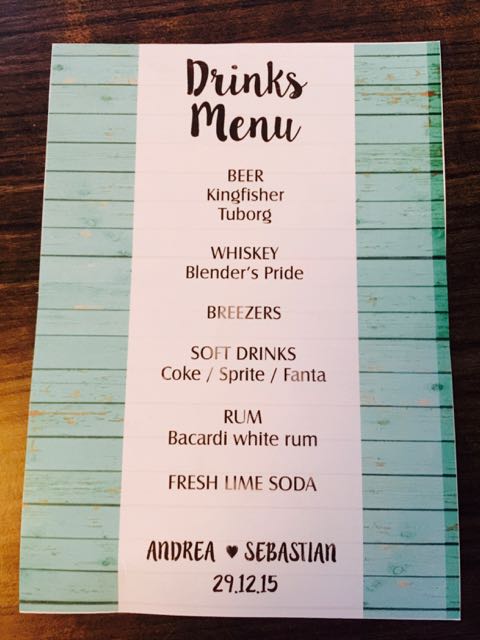 Drinks
Menu
BEER
Kingfisher
Tuborg
WHISKEY
Blender's Pride
BREEZERS
SOFT DRINKS
Coke / Sprite / Fanta
RUM
Bacardi white rum
FRESH LIME SODA
ANDREA ♥ SEBASTIAN
29.12.15